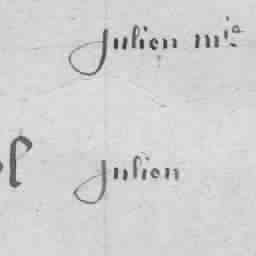 Julien mia
Julien